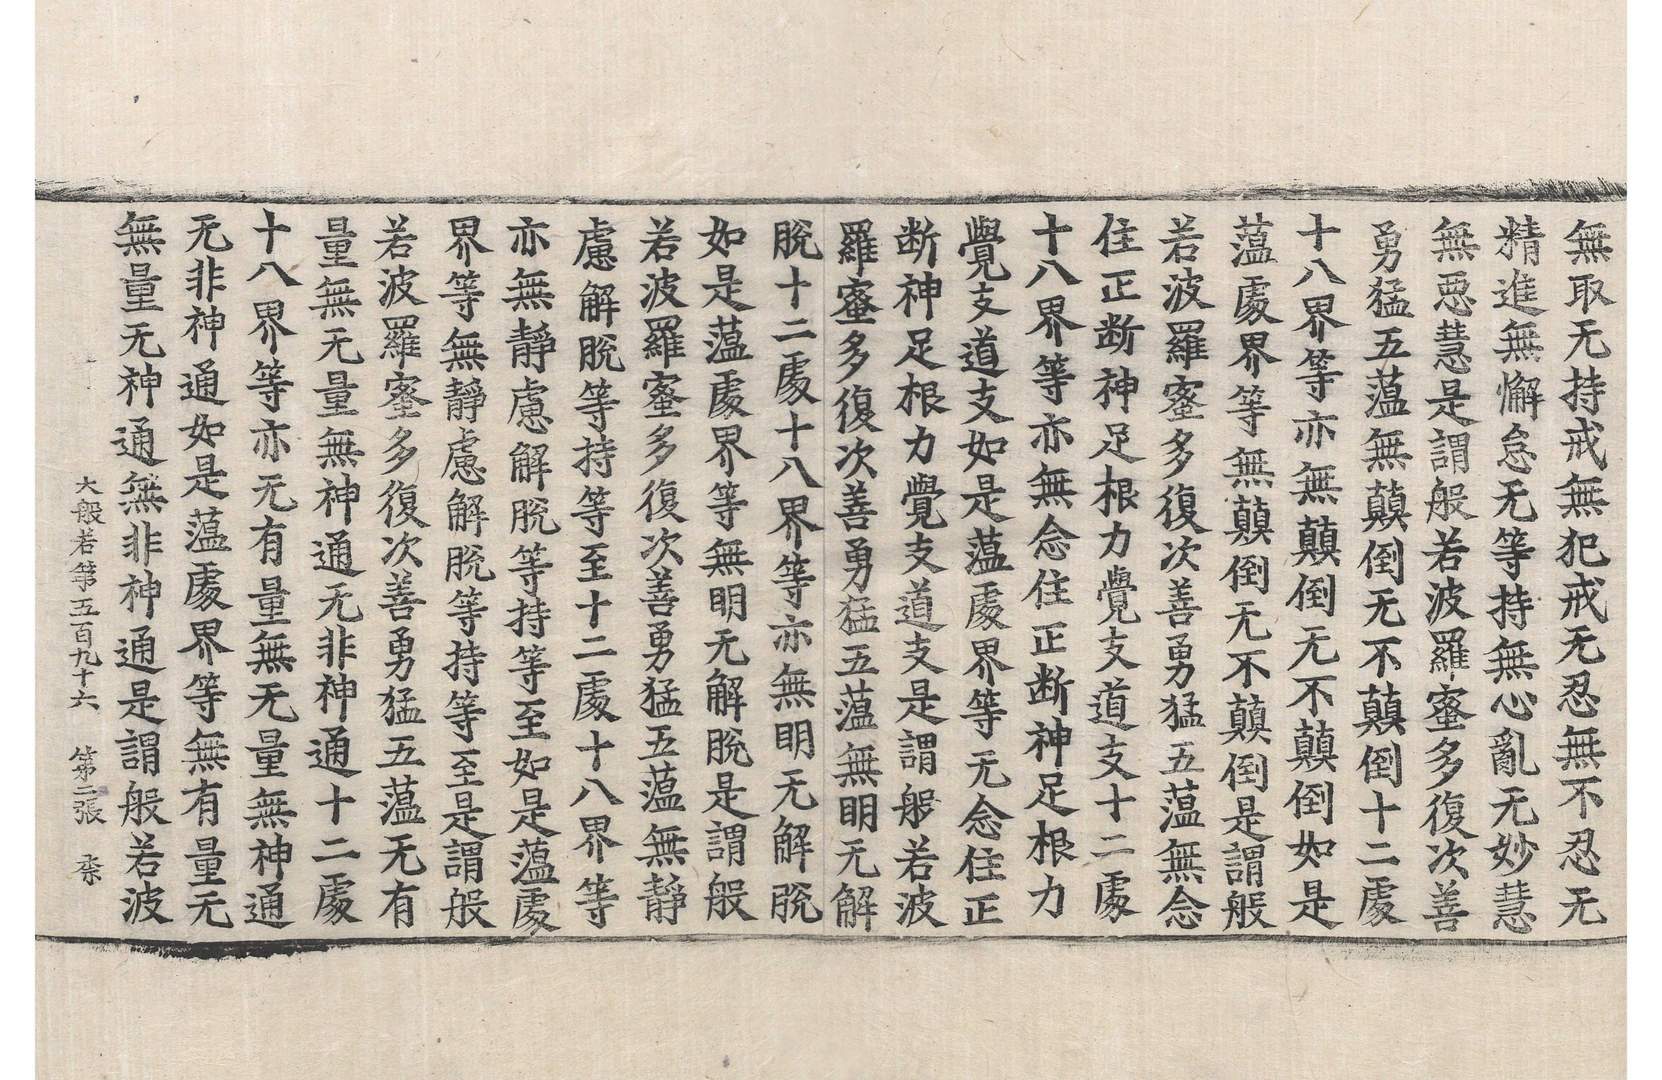 無取无持戒無犯戒无忍無不忍无
精進無懈怠无等持無心亂无妙慧
無惡慧是謂般若波羅蜜多復次善
勇猛五蘊無顛倒无不顛倒十二處
十八界等亦無顛倒无不顛倒如是
蘊處界等無顛倒无不顛倒是謂般
若波羅蜜多復次善勇猛五蘊無念
住正断神足根力覺支道支十二處
十八界等亦無念住正断神足根力
覺支道支如是蘊處界等无念住正
断神足根力覺支道支是謂般若波
羅蜜多復次善勇猛五蘊無明无解
脫十二處十八界等亦無明无解脫
如是蘊處界等無明无解脫是謂般
若波羅蜜多復次善勇猛五蘊無靜
慮解脫等持等至十二處十八界等
亦無靜慮解脫等持等至如是蘊處
界等無靜慮解脫等持等至是謂般
若波羅蜜多復次善勇猛五蘊无有
量無无量無神通无非神通十二處
十八界等亦无有量無无量無神通
无非神通如是蘊處界等無有量无
無量无神通無非神通是謂般若波
大般若第五百九十六 第二張 柰